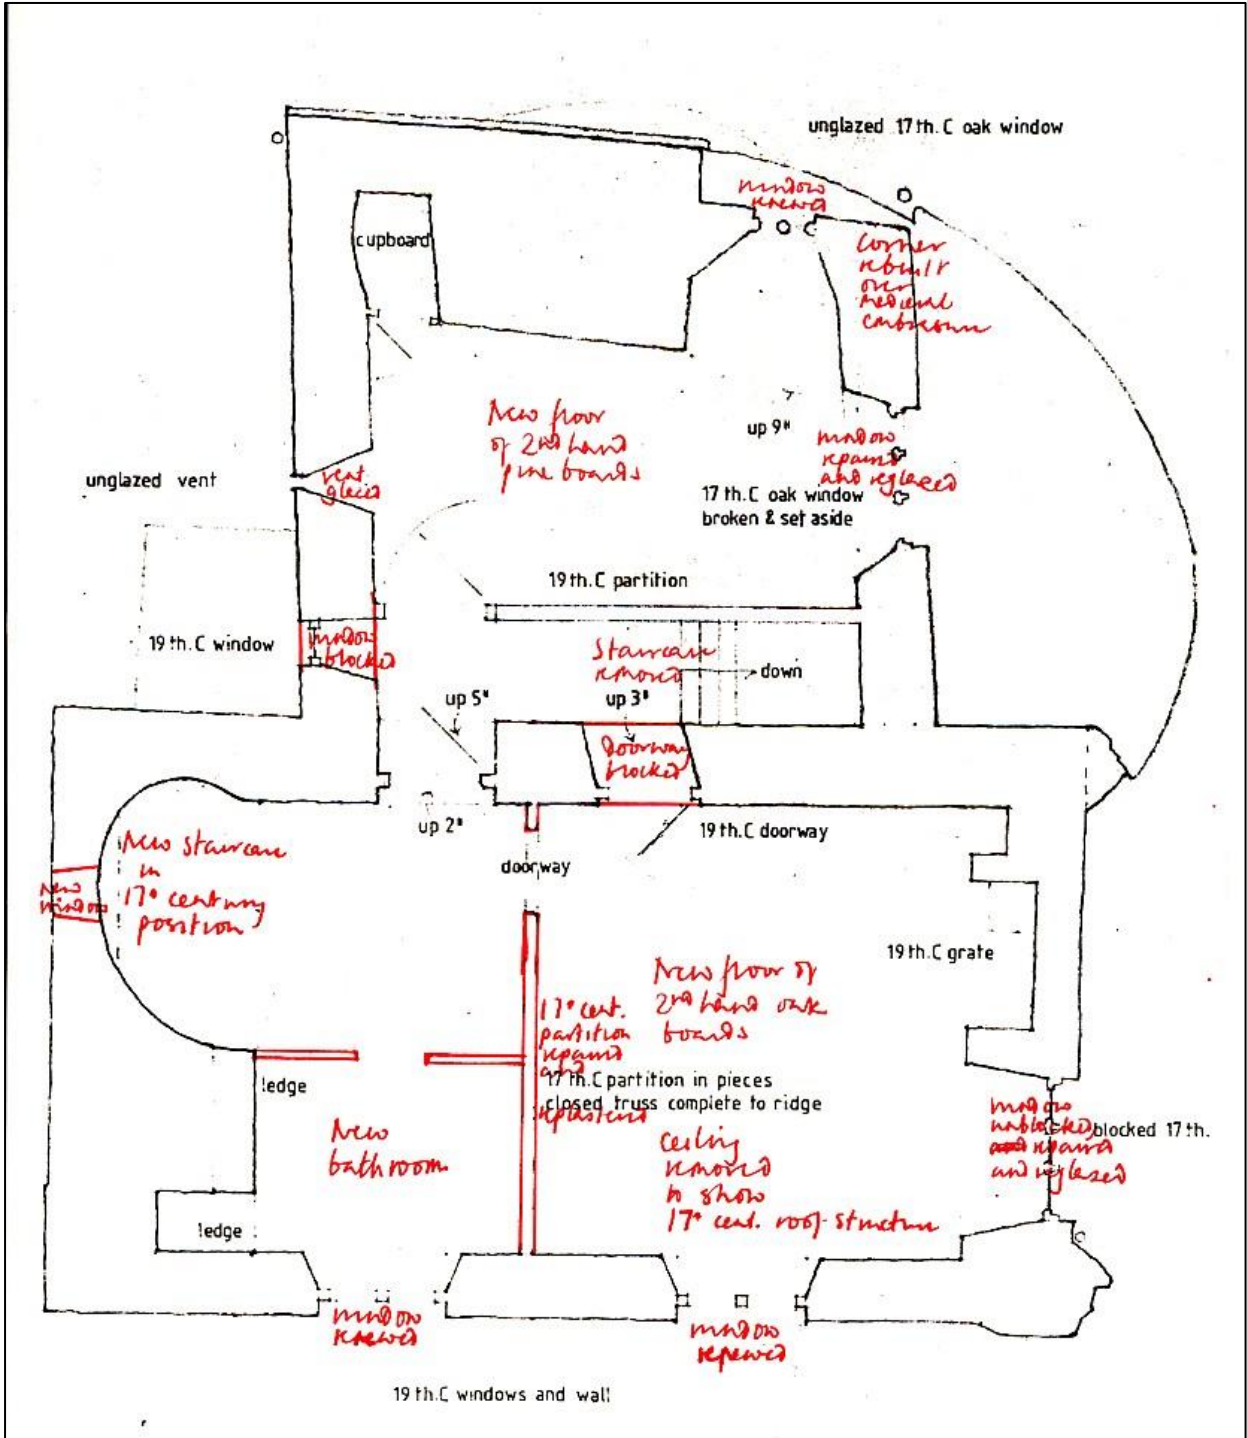 unglazed 17th.C oak window
window
renewed
cupboard
Corner
rebuilt
over
medieval
embrasure
New floor
of 2nd hand
pine boards
up 9"
window
repaired
and reglazed
unglazed vent
vent
glazed
17th.C oak window
broken & set aside
19th.C partition
19th.C window
window
blocked
Staircase
removed
down
up 5"
up 3"
Doorway
blocked
up 2"
19th.C doorway
doorway
New staircase
in
17th century
position
New
window
19th.C grate
New floor of
2nd hand oak
boards
17th cent.
partition
repaired
and
replastered
17th.C partition in pieces
closed truss complete to ridge
ledge
window
unblocked,
and repaired
and reglazed
blocked 17th.
New
bathroom
ceiling
removed
to show
17th cent. roof-structure
ledge
window
renewed
window
renewed
19th.C windows and wall